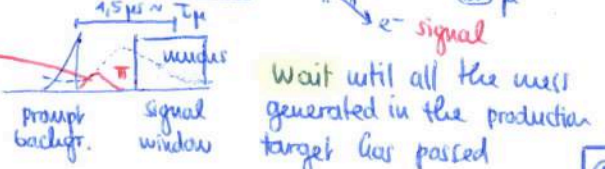 1,5 μs ~ τμ
e⁻ signal
muons
π
prompt backgr.
signal window
Wait until all the mess
generated in the production
target has passed